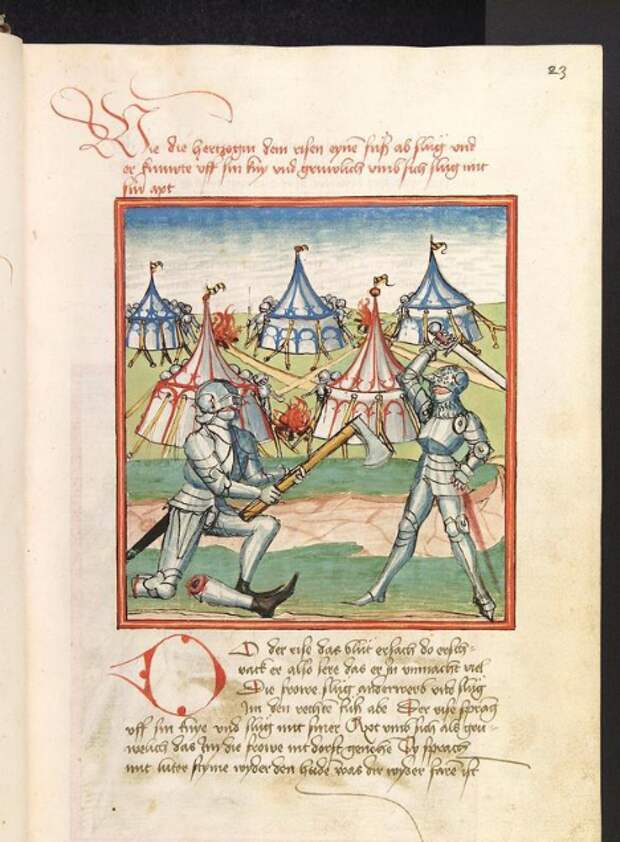 23
Wie die hertzogin dem risen eynen fuß ab slug und
er knuwete uff sin kny und gruwlich umb sich slug mit
siner axt
Do der rise das blut ersach do ersch-
rack er also sere das er in unmacht viel
Die frowe slug anderwerb und slug
Im den rechten fuß abe Der rise sprang
uff sin knye und slug mit siner Axt umb sich als gru-
welich das Im die frowe nit dorst genehe Sy sprach
mit luter styme wyder den heide was dir wyder faren ist